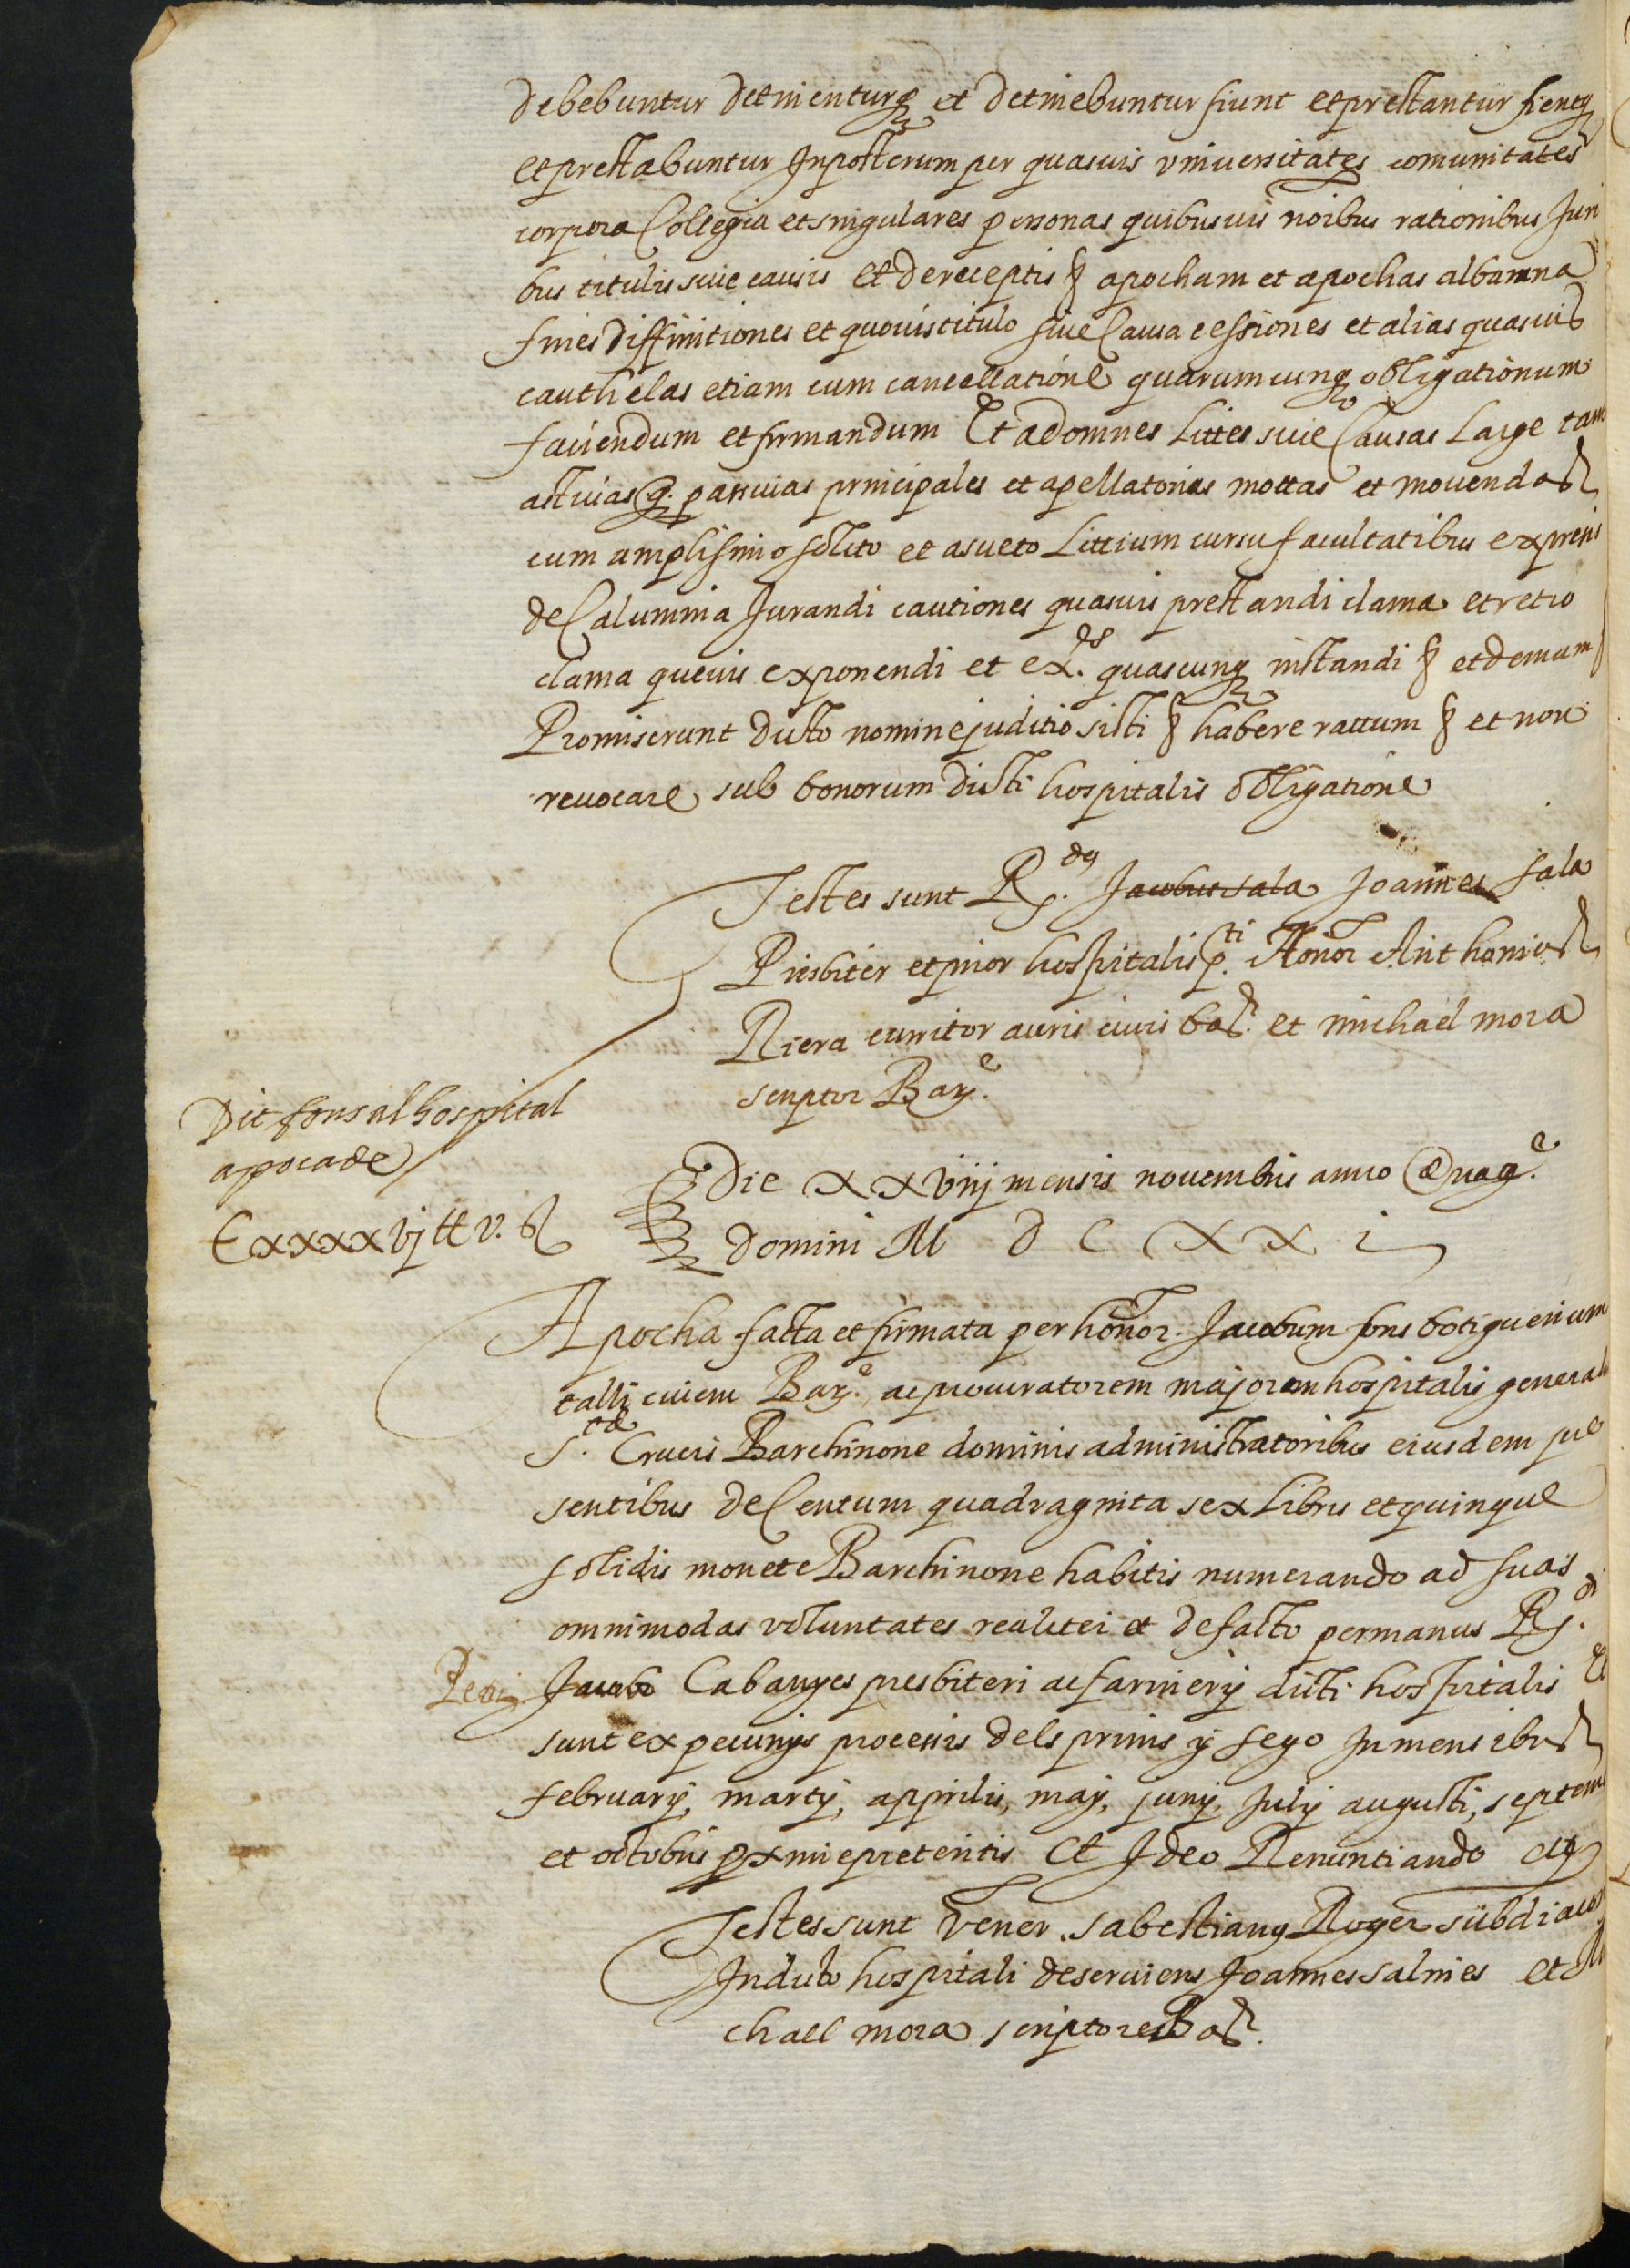 debebuntur detinenturq et detinebuntur fiunt et prestantur fientq
et prestabuntur Inposterum per quasuis vniuersitates comunitates
corpora Collegia et singulares personas quibusuis noibus rationibus Juri
bus titulis siue causis et de receptis § apocham et apochas albarana
fines diffinitiones et quouis titulo siue Causa cessiones et alias quasuis
cauthelas etiam cum cancellatione quarumcunq obligationum
faciendum et firmandum Et ad omnes Littes siue Causas Large tam
actiuas q. passiuas principales et apellatorias mottas et mouendas
cum amplissimo solito et asueto Littium cursu facultatibus expressis
de Calumnia Jurandi cautiones quasuis prestandi clama et retro
clama queuis exponendi et ex.es quascunq instandi § et demum
Promiserunt dicto nomine juditio sisti § habere rattum § et non
reuocare sub bonorum dicti hospitalis obligatione
Testes sunt R.dus Jacobus sala Joannes sala
Presbiter et prior hospitalis p.ti Honor Anthonius
Riera curritor auris ciuis bar. et michael mora
scriptor Bar.e
Dit fons al hospital
apoca de
Cxxxxvj ll v. s
Die xxviiij mensis nouembris anno a Natt.e
domini M D C XX i
Apocha facta et firmata per honor. Jacobum fons botiguerium
talli ciuem Bar.e ac procuratorem majorem hospitalis generalis
S.te Crucis Barchinone dominis administratoribus eiusdem pre
sentibus de Centum quadraginta sex Libris et quinque
solidis monete Barchinone habitis numerando ad suas
omnimodas voluntates realiter et de facto per manus R.di
Jacobi Cabanyes presbiteri ac farinerij dicti hospitalis Et
sunt ex pecunijs processis dels prims y sego In mensibus
februarij, martij, apprilis, maij, junij, Julij augusti, septem
et octobris pxime preteritis Et Ideo Renuntiando etc
Testes sunt Vener. sabestianus Roger subdiacon
In dicto hospitali deseruiens Joannes salines et Mi
chael mora scriptores Bar.